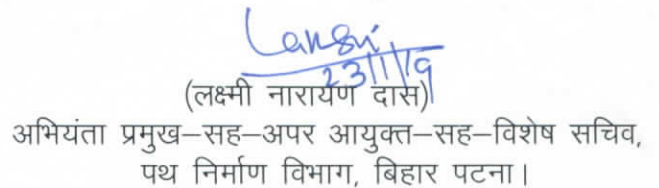 23/1/19
(लक्ष्मी नारायण दास)
अभियंता प्रमुख–सह–अपर आयुक्त–सह–विशेष सचिव,
पथ निर्माण विभाग, बिहार पटना।